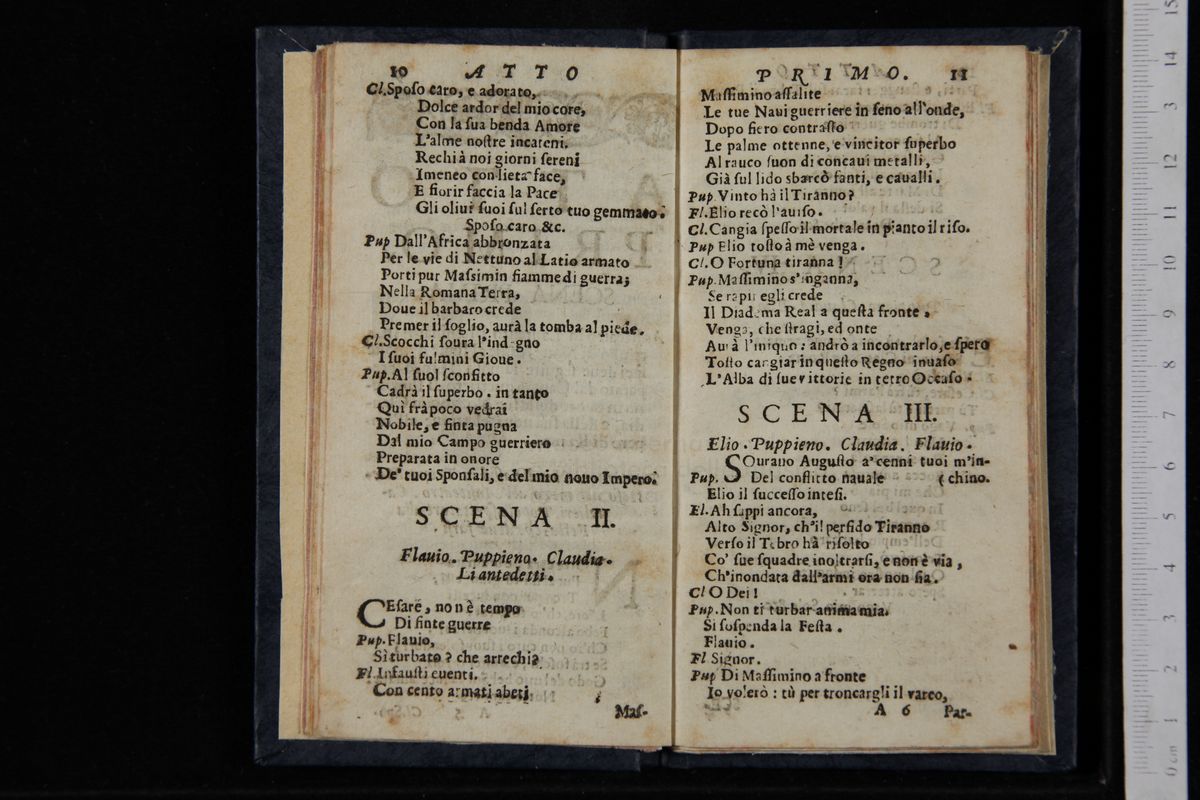 10 ATTO
Cl.Sposo caro, e adorato,
Dolce ardor del mio core,
Con la sua benda Amore
L'alme nostre incateni.
Rechi à noi giorni sereni
Imeneo con lieta face,
E fiorir faccia la Pace
Gli oliui suoi sul serto tuo gemmato.
Sposo caro &c.
Pup Dall'Africa abbronzata
Per le vie di Nettuno al Latio armato
Porti pur Massimin fiamme di guerra;
Nella Romana Terra,
Doue il barbaro crede
Premer il soglio, aurà la tomba al piede.
Cl.Scocchi soura l'indegno
I suoi fulmini Gioue.
Pup.Al suol sconfitto
Cadrà il superbo. in tanto
Quì frà poco vedrai
Nobile, e finta pugna
Dal mio Campo guerriero
Preparata in onore
De' tuoi Sponsali, e del mio nouo Impero.
SCENA II.
Flauio. Puppieno. Claudia.
Li antedetti.
CEsare, non è tempo
Di finte guerre
Pup.Flauio,
Sì turbato? che arrechi?
Fl.Infausti euenti.
Con cento armati abeti
Mas-
PRIMO. 11
Massimino assalite
Le tue Naui guerriere in seno all'onde,
Dopo fiero contrasto
Le palme ottenne, e vincitor superbo
Al rauco suon di concaui metalli,
Già sul lido sbarcò fanti, e caualli.
Pup.Vinto hà il Tiranno?
Fl.Elio recò l'auiso.
Cl.Cangia spesso il mortale in pianto il riso.
Pup Elio tosto à mè venga.
Cl.O Fortuna tiranna!
Pup.Massimino s'inganna,
Se rapir egli crede
Il Diadema Real a questa fronte.
Venga, che stragi, ed onte
Aurà l'iniquo: andrò a incontrarlo, e spero
Tosto cangiar in questo Regno inuaso
L'Alba di sue vittorie in tetro Occaso.
SCENA III.
Elio. Puppieno. Claudia. Flauio.
SOurano Augusto a' cenni tuoi m'in-
Pup. Del conflitto nauale (chino.
Elio il successo intesi.
El.Ah sappi ancora,
Alto Signor, ch'il perfido Tiranno
Verso il Tebro hà risolto
Co' sue squadre inoltrarsi, e non è via,
Ch'inondata dall'armi ora non sia.
Cl O Dei!
Pup.Non ti turbar anima mia.
Si sospenda la Festa.
Flauio.
Fl Signor.
Pup Di Massimino a fronte
Io volerò: tù per troncargli il varco,
A 6 Par-